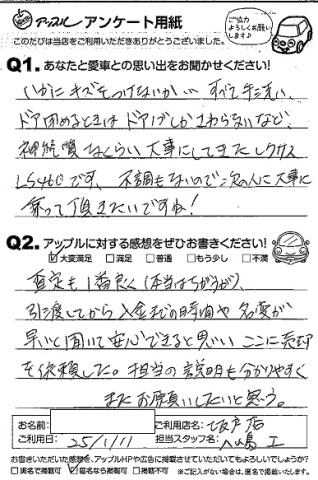 アップル アンケート用紙
このたびは当店をご利用いただきありがとうございました。
ご協力
よろしくお願い
します♪
Q1. あなたと愛車との思い出をお聞かせください!
いかにキズをつけないか… すべて手洗い、
ドア閉めるときはドアノブしかさわらないなど、
神経質なくらい大事にしてきたレクサス
LS460です。不調もないので次の人に大事に
乗って頂きたいですね!
Q2. アップルに対する感想をぜひお書きください!
大変満足 満足 普通 もう少し 不満
査定も1番良く(本当はちがうが)、
引渡してから入金までの時間や名変が
早いと聞いて安心できると思い ここに売却
を依頼した。担当の説明も分かりやすく
またお願いしたいと思う。
お名前: ご利用店名: 坂戸店
ご利用日: 25/1/11 担当スタッフ名:
お書きいただいた感想を、アップルHPや広告に掲載させていただいてもよろしいでしょうか?
実名で掲載可 匿名なら掲載可 掲載不可 ※ご記入がない場合は、匿名で掲載いたします。